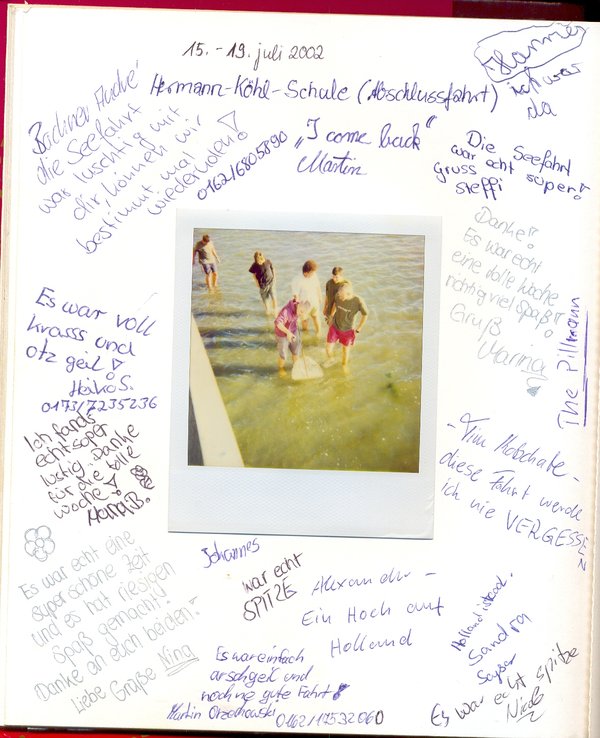 15. - 19. juli 2002
Hermann-Köhl-Schule (Abschlussfahrt)
Hannie
ich war
da
die Seefahrt
war luschtig mit
dir, können wir
bestimmt mal
wiederholen!
0162/6805890
"I come back"
Martin
Die Seefahrt
war echt super!
Gruss
Steffi
Danke!!
Es war echt
eine tolle Woche
richtig viel Spaß!
Gruß
Marina
The Pillmann
Es war voll
krasss und
otz geil!
Heiko S.
0173/7235236
Ich fands
echt super
lustig. Danke
für die tolle
woche!
B.
- Tim
diese Fahrt werde
ich nie VERGESSEN
Es war echt eine
super schöne Zeit
und es hat riesigen
Spaß gemacht!
Danke an euch beiden!
Liebe Grüße Nina
Johannes
war echt
SPITZE
Alexander -
Ein Hoch auf
Holland
Es war einfach
arschgeil und
noch ne gute Fahrt!
Martin Orzechowski 0162/17532060
Holland ist cool.
Sandra
Es war echt spitze
Nicole